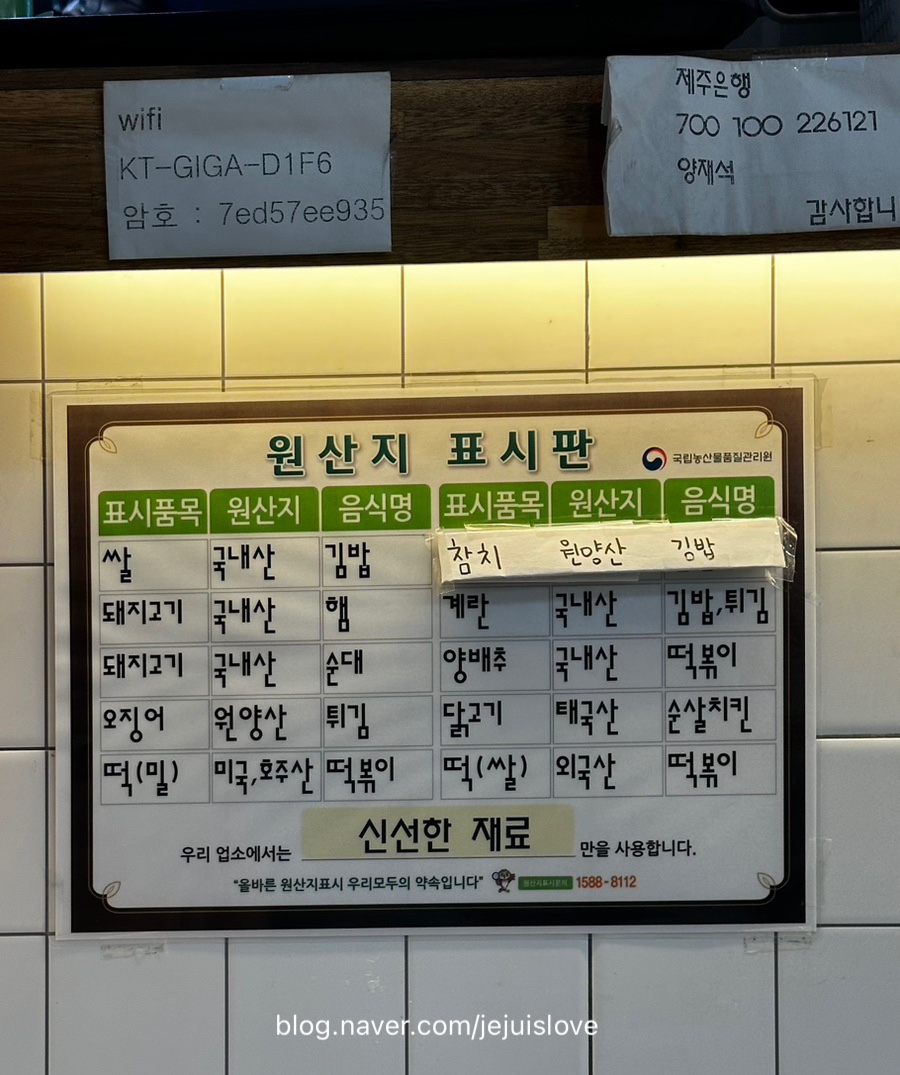 wifi
KT-GIGA-D1F6
암호 : 7ed57ee935
제주은행
700 100 226121
양재석
감사합니
원산지 표시판
국립농산물품질관리원
표시품목 원산지 음식명 표시품목 원산지 음식명
쌀 국내산 김밥 참치 원양산 김밥
돼지고기 국내산 햄 계란 국내산 김밥,튀김
돼지고기 국내산 순대 양배추 국내산 떡볶이
오징어 원양산 튀김 닭고기 태국산 순살치킨
떡(밀) 미국,호주산 떡볶이 떡(쌀) 외국산 떡볶이
우리 업소에서는 신선한 재료 만을 사용합니다.
"올바른 원산지표시 우리모두의 약속입니다" 원산지표시문의 1588-8112
blog.naver.com/jejuislove